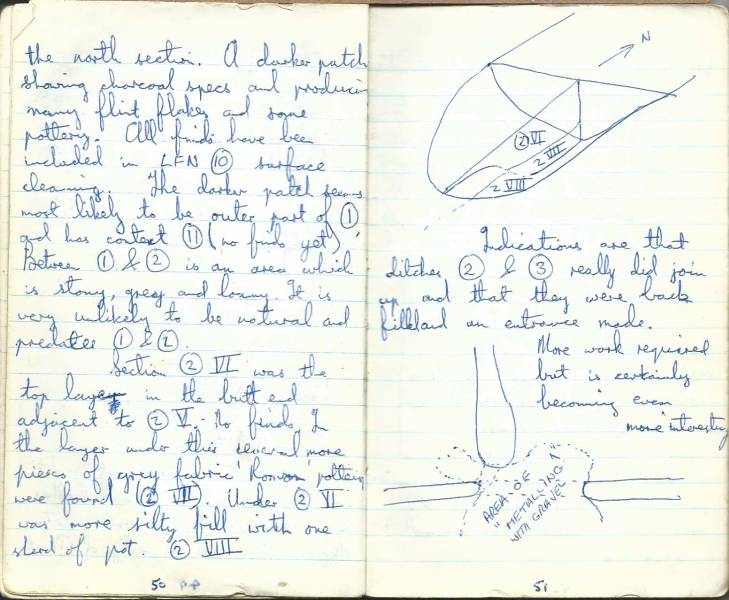 the north section. A darker patch
showing charcoal specs and producing
many flint flakes and some
pottery. All finds have been
included in LFN ⑩ surface
cleaning. The darker patch seems
most likely to be outer part of ①
and has context ⑪ (no finds yet)
Between ① & ② is an area which
is stony, grey and loamy. It is
very unlikely to be natural and
predates ① & ②.
Section ② VI was the
top layer in the butt end
adjacent to ② V. No finds. In
the layer under this several more
pieces of grey fabric 'Roman' pottery
were found (② VII). Under ② VI
was more silty fill with one
sherd of pot. ② VIII
50
N
② VI
2 VII
2 VIII
Indications are that
ditches ② & ③ really did join
up and that they were back
filled and an entrance made.
More work required
but is certainly
becoming even
more interesting
AREA OF
"METALLING"
WITH GRAVEL
51